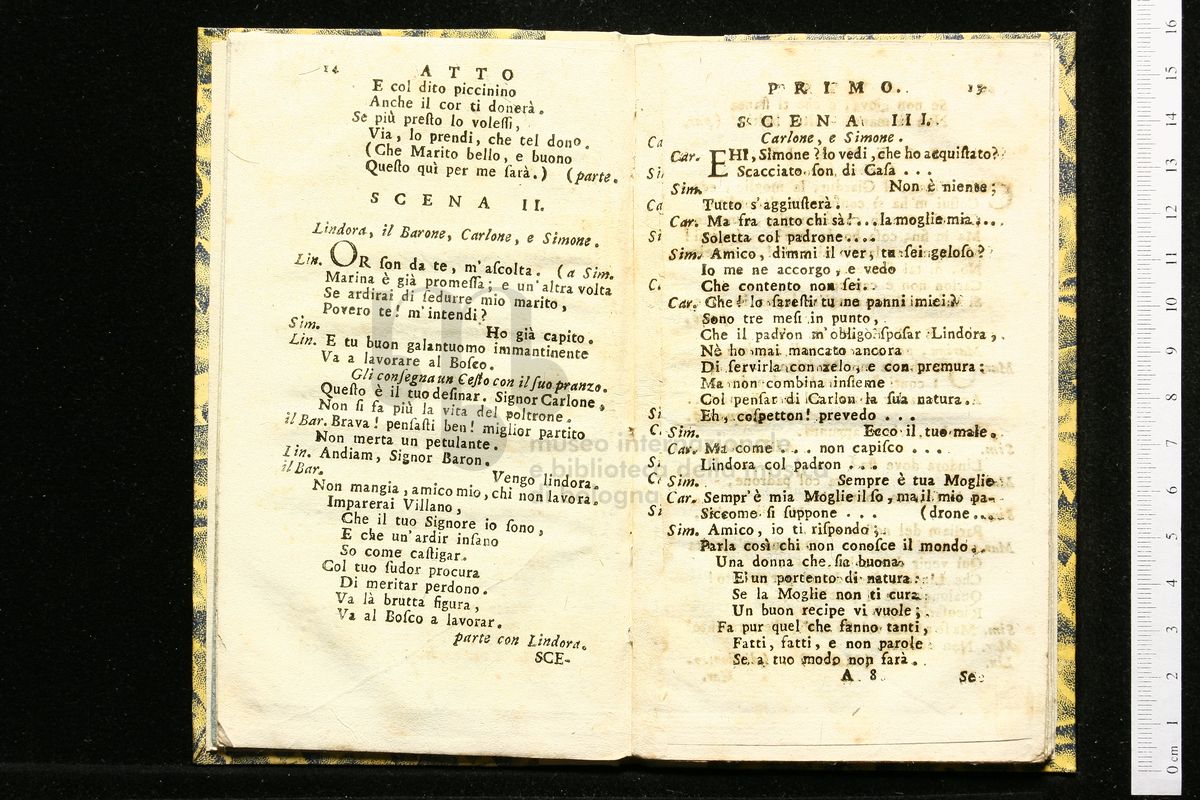 14
ATTO
E col dito piccinino
Anche il cor ti donerà.
Se più preſto lo voleſſi,
Via, lo prendi, che tel dono.
(Che Marito bello, e buono
Queſto quì per me ſarà.) (parte.
SCENA II.
Lindora, il Barone, Carlone, e Simone.
Lin. OR ſon da te, m'aſcolta. (a Sim.
Marina è già promeſſa; e un'altra volta
Se ardirai di ſedurre mio marito,
Povero te! m'intendi?
Sim. Ho già capito.
Lin. E tu buon galantuomo immantinente
Va a lavorare al Boſco.
Gli conſegna un Ceſto con il ſuo pranzo.
Queſto è il tuo deſinar. Signor Carlone,
Non ſi fa più la vita del poltrone.
il Bar. Brava! penſaſti ben! miglior partito
Non merta un petulante.
Lin. Andiam, Signor Baron.
il Bar. Vengo lindora.
Non mangia, amico mio, chi non lavora.
Imparerai Villano,
Che il tuo Signore io ſono,
E che un'ardir inſano
So come caſtigar.
Col tuo ſudor procura
Di meritar perdono.
Va là brutta figura,
Va al Boſco a lavorar.
parte con Lindora.
SCE-
PRIMO.
15
SCENA III.
Carlone, e Simone.
Car. EHI, Simone? lo vedi, che ho acquiſtato?
Scacciato ſon di Caſa ...
Sim. Non è niente;
Tutto s'aggiuſterà.
Car. Ma fra tanto chi sà!... la moglie mia....
Soletta col padrone....
Sim. Amico, dimmi il ver, tu ſei geloſo?
Io me ne accorgo, e vedo
Che contento non ſei.
Car. Che! lo ſareſti tu ne panni miei?
Sono tre meſi in punto,
Che il padron m'obligò ſpoſar Lindora,
Nè ho mai mancato ancora
Di ſervirla con zelo, e con premura;
Ma non combina inſieme
Col penſar di Carlon la ſua natura.
Eh, coſpetton! prevedo ...
Sim. Ecco il tuo male.
Car. Ma come ... non capiſco ...
Lindora col padron ...
Sim. Sempre è tua Moglie
Car. Sempr'è mia Moglie il ſo, ma il mio pa-
Siccome ſi ſuppone ... (drone....
Sim. Amico, io ti riſpondo;
Parla così chi non conoſce il mondo.
Una donna che ſia buona
E' un portento di natura:
Se la Moglie non ti cura
Un buon recipe vi vuole;
Fa pur quel che fanno tanti,
Fatti, fatti, e non parole
Se a tuo modo non farà.
A 8
Se
museo internazionale
e biblioteca della musica
Bologna
0 cm 1 2 3 4 5 6 7 8 9 10 11 12 13 14 15 16